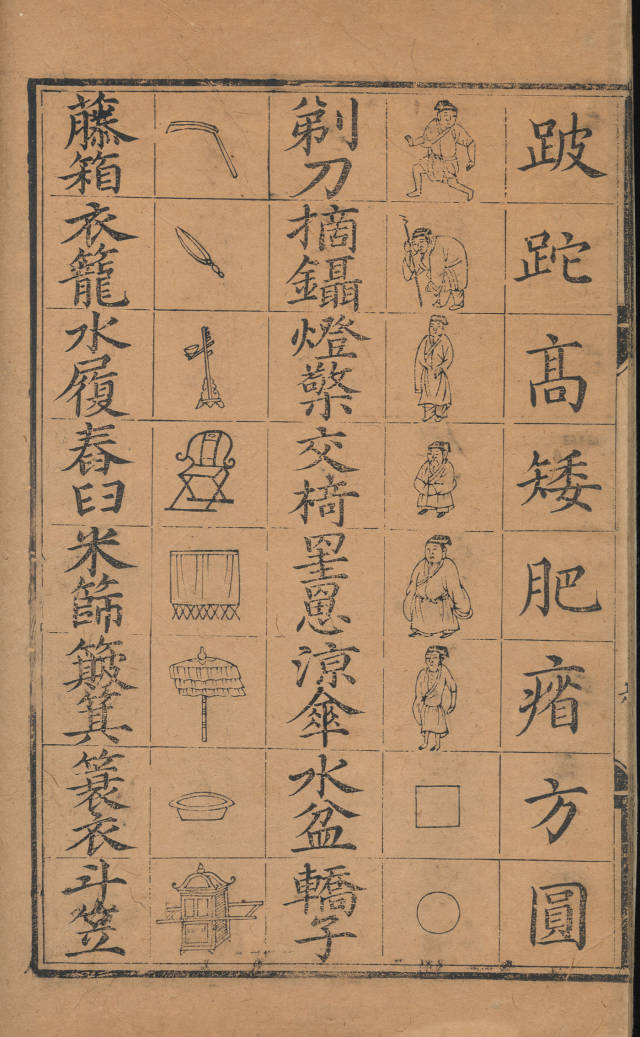 跛跎髙矮肥瘠方圓
剃刀摘鑷燈檠交椅罣罳涼傘水盆轎子
藤箱衣籠水履舂臼米篩簸箕簑衣斗笠